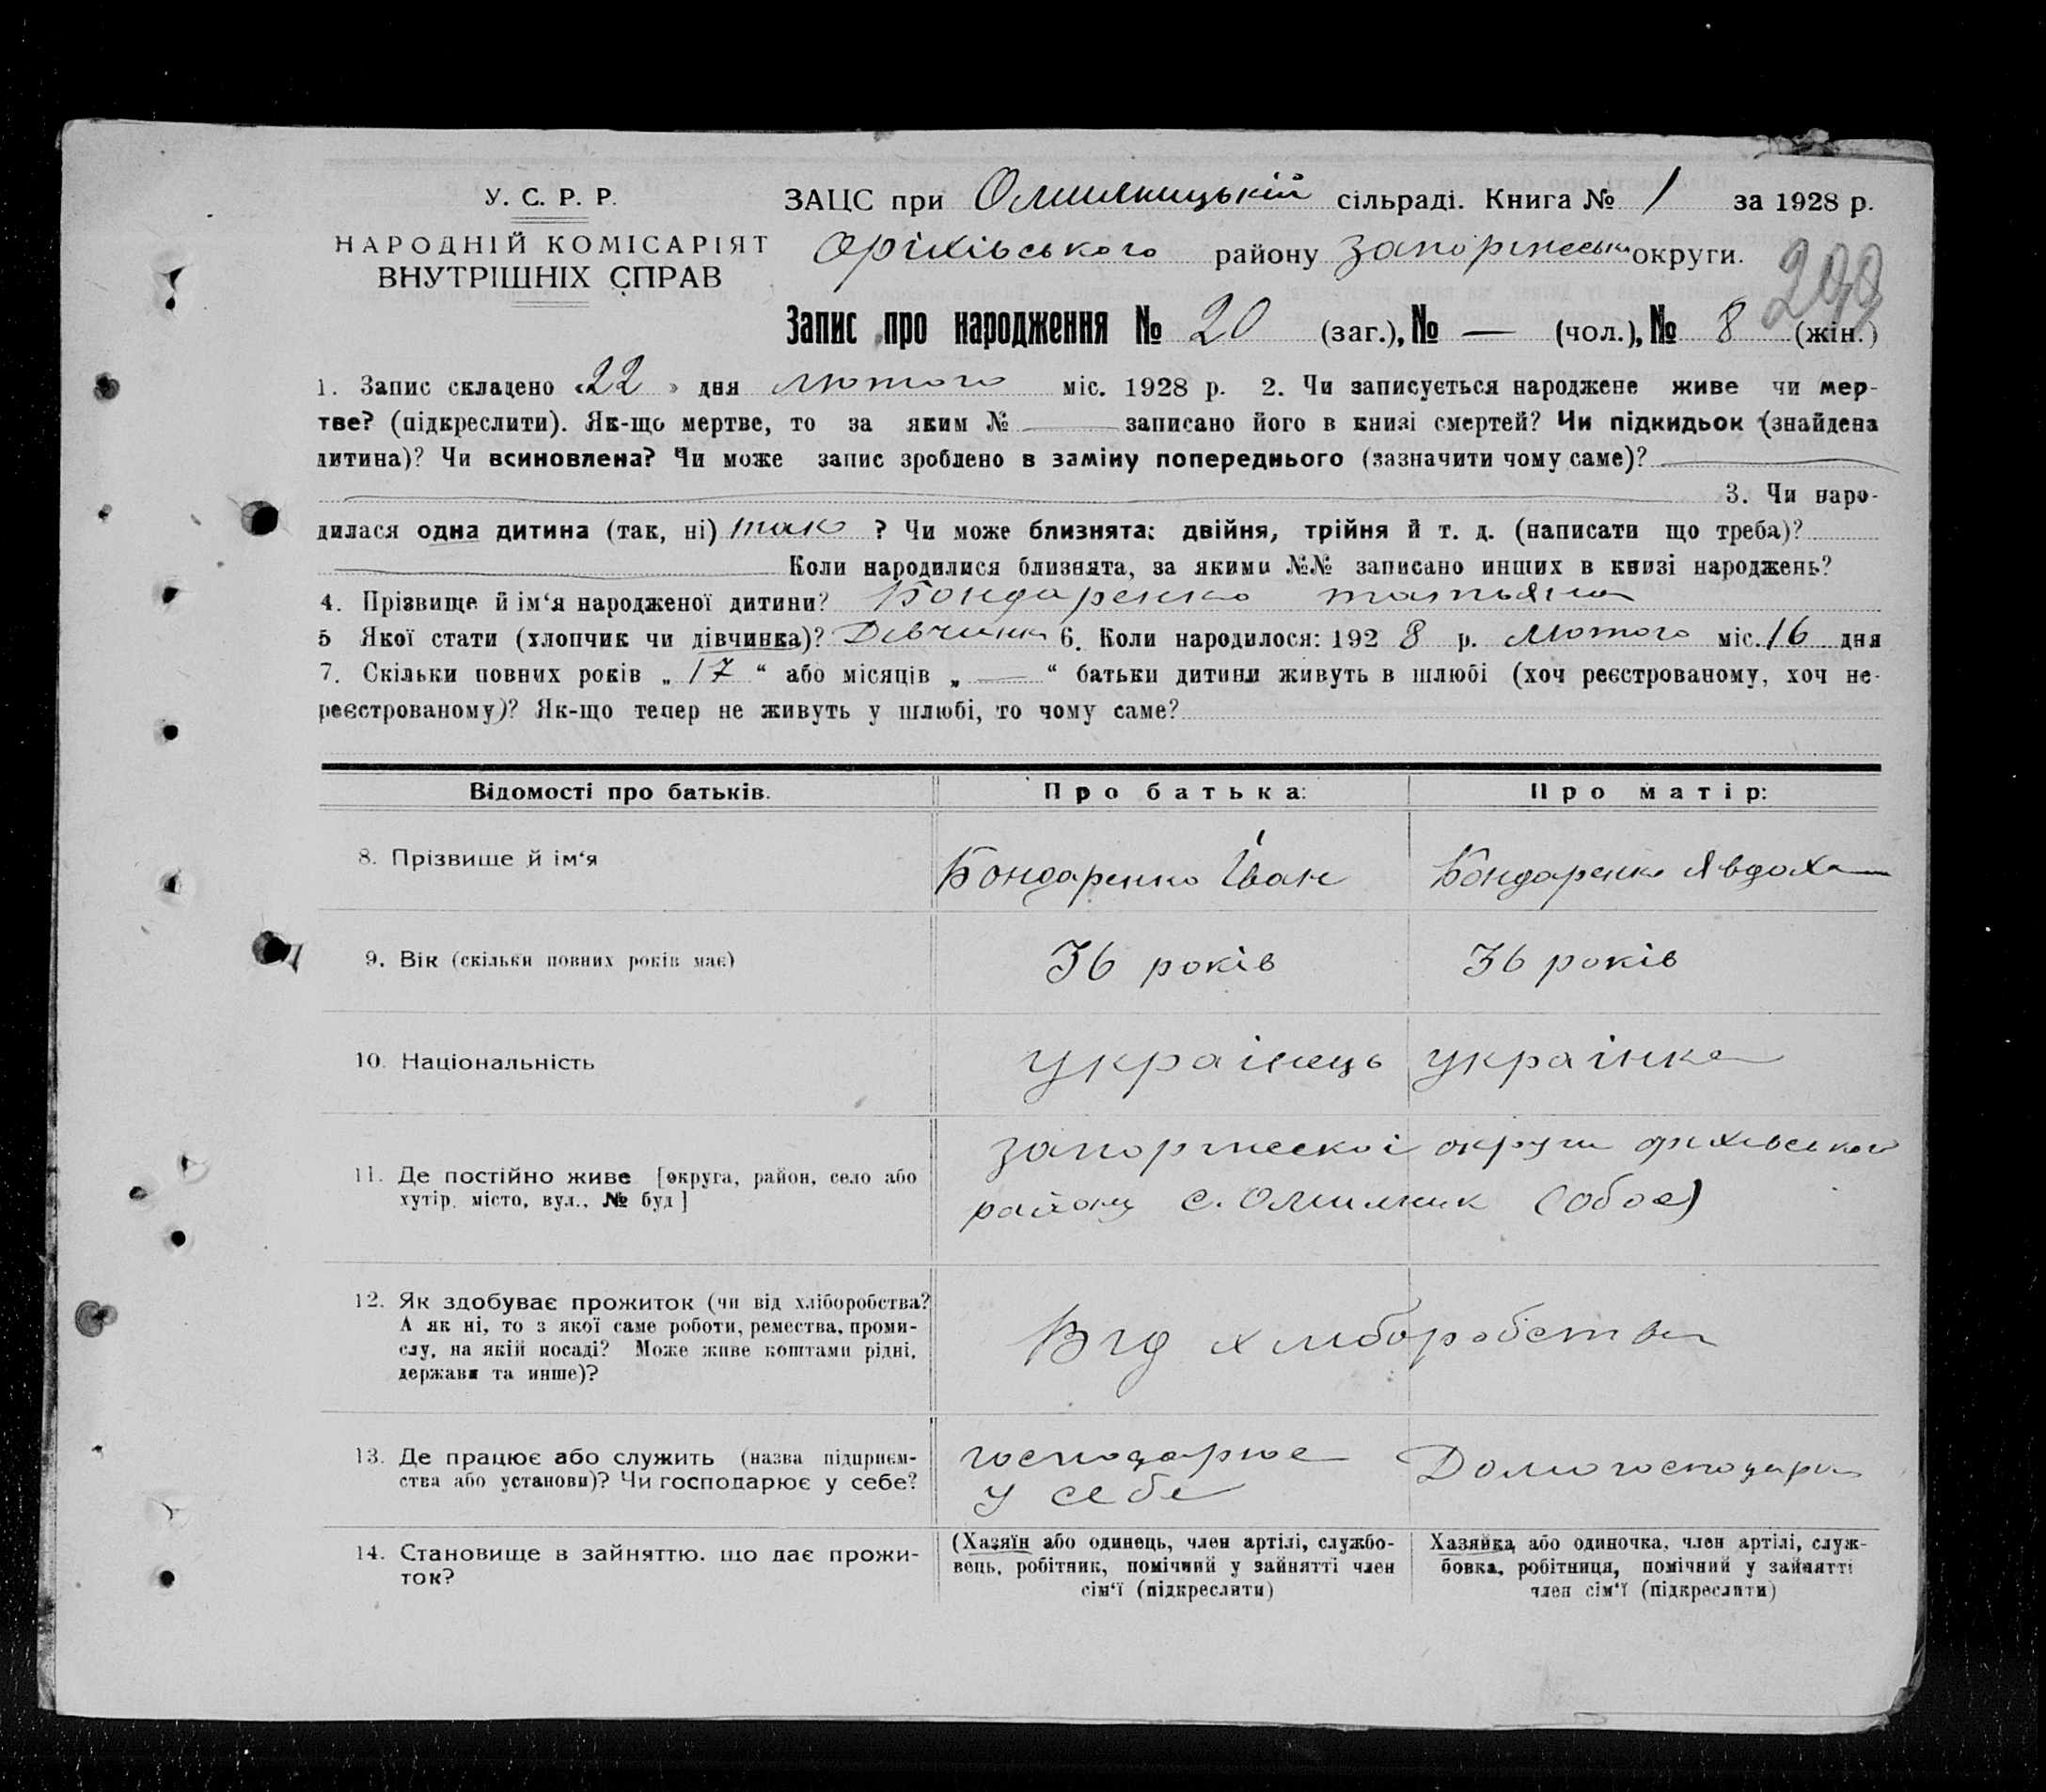 У. С. Р. Р.
НАРОДНІЙ КОМІСАРІЯТ
ВНУТРІШНІХ СПРАВ
ЗАЦС при Омильницькій сільраді. Книга № 1 за 1928 р.
Оріхівського району Запоріжськ округи.
299
Запис про народження № 20 (заг.), № — (чол.), № 8 (жін.)
1. Запис складено «22» дня лютого міс. 1928 р. 2. Чи записується народжене живе чи мер-
тве? (підкреслити). Як-що мертве, то за яким № —— записано його в книзі смертей? Чи підкидьок (знайдена
дитина)? Чи всиновлена? Чи може запис зроблено в заміну попереднього (зазначити чому саме)?
3. Чи наро-
дилася одна дитина (так, ні) так ? Чи може близнята: двійня, трійня й т. д. (написати що треба)?
Коли народилися близнята, за якими №№ записано инших в книзі народжень?
4. Прізвище й ім‘я народженої дитини? Бондаренко татьяна
5 Якої стати (хлопчик чи дівчинка)? Дівчинка 6. Коли народилося: 1928 р. лютого міс. 16 дня
7. Скільки повних років „ 17 “ або місяців „ — “ батьки дитини живуть в шлюбі (хоч реєстрованому, хоч не-
реєстрованому)? Як-що тепер не живуть у шлюбі, то чому саме?
Відомості про батьків. Про батька: Про матір:
8. Прізвище й ім‘я Бондаренко Іван Бондаренко Явдоха
9. Вік (скільки повних років має) 36 років 36 років
10. Національність українець українка
11. Де постійно живе [округа, район, село або
хутір, місто, вул., № буд]
запоріжскоі округи оріхівського
району с. Омильник (обоє)
12. Як здобуває прожиток (чи від хліборобства?
А як ні, то з якої саме роботи, ремества, проми-
слу, на якій посаді? Може живе коштами рідні,
держави та инше)?
Від хліборобства
13. Де працює або служить (назва підприєм-
ства або установи)? Чи господарює у себе?
господарює
у себе
Домогосподарка
14. Становище в зайняттю, що дає прожи-
ток?
(Хазяїн або одинець, член артілі, службо-
вець, робітник, помічний у зайнятті член
сім‘ї (підкреслити)
Хазяйка або одиночка, член артілі, служ-
бовка, робітниця, помічний у зайнятті
член сім‘ї (підкреслити)